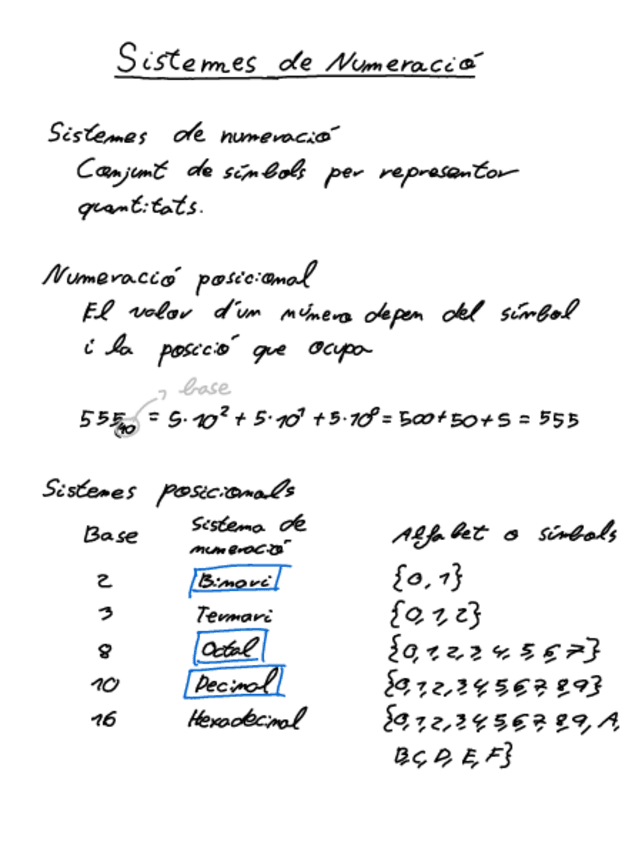 Sistemes de Numeració
Sistemes de numeració
Conjunt de símbols per representar
quantitats.
Numeració posicional
El valor d'un número depen del símbol
i la posició que ocupa
base
555₁₀ = 5·10² + 5·10¹ + 5·10⁰ = 500+50+5 = 555
Sistemes posicionals
Base Sistema de numeració Alfabet o símbols
2 Binari {0, 1}
3 Ternari {0, 1, 2}
8 Octal {0, 1, 2, 3, 4, 5, 6, 7}
10 Decimal {0, 1, 2, 3, 4, 5, 6, 7, 8, 9}
16 Hexadecimal {0, 1, 2, 3, 4, 5, 6, 7, 8, 9, A,
B, C, D, E, F}